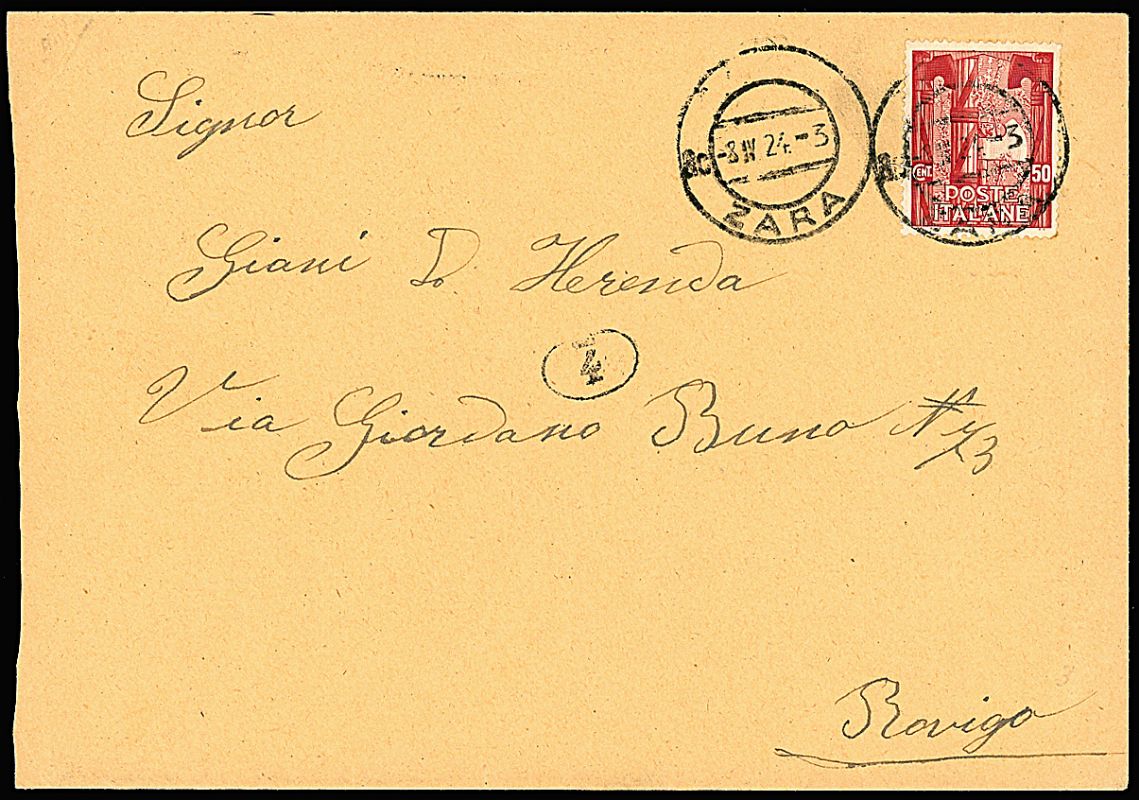 Signor
-8 IV. 24.-3
ZARA
CENT. 50
POSTE
ITALIANE
Giani D. Herenda
4
Via Giordano Buno No 73
Rovigo